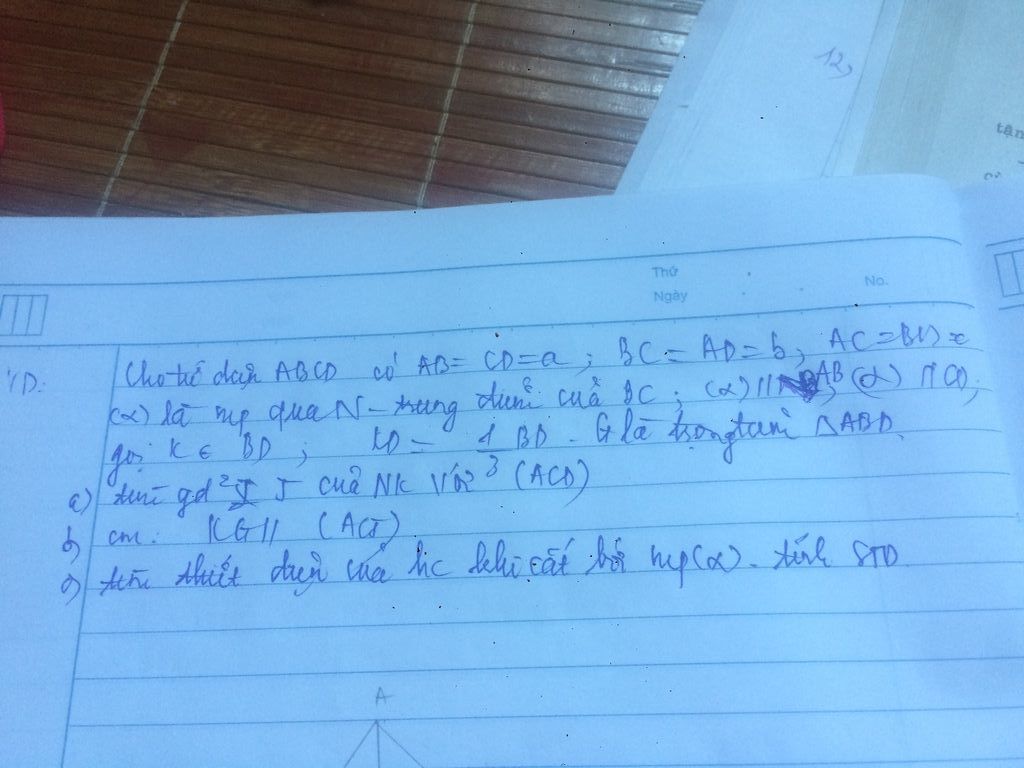 12,
tận
Thứ
Ngày
No.
VD: Cho tứ diện ABCD có AB = CD = a ; BC = AD = b ; AC = BD = c
(α) là mp qua N - trung điểm của BC ; (α) // AB ; (α) // CD ;
gọi K ∈ BD ; KD = 1/3 BD . G là trọng tâm △ABD.
a) tìm gđ² J của NK Với (ACD)
b) cm: KG // (ACJ)
c) tìm thiết diện của hc khi cắt bởi mp(α). tính STD
A